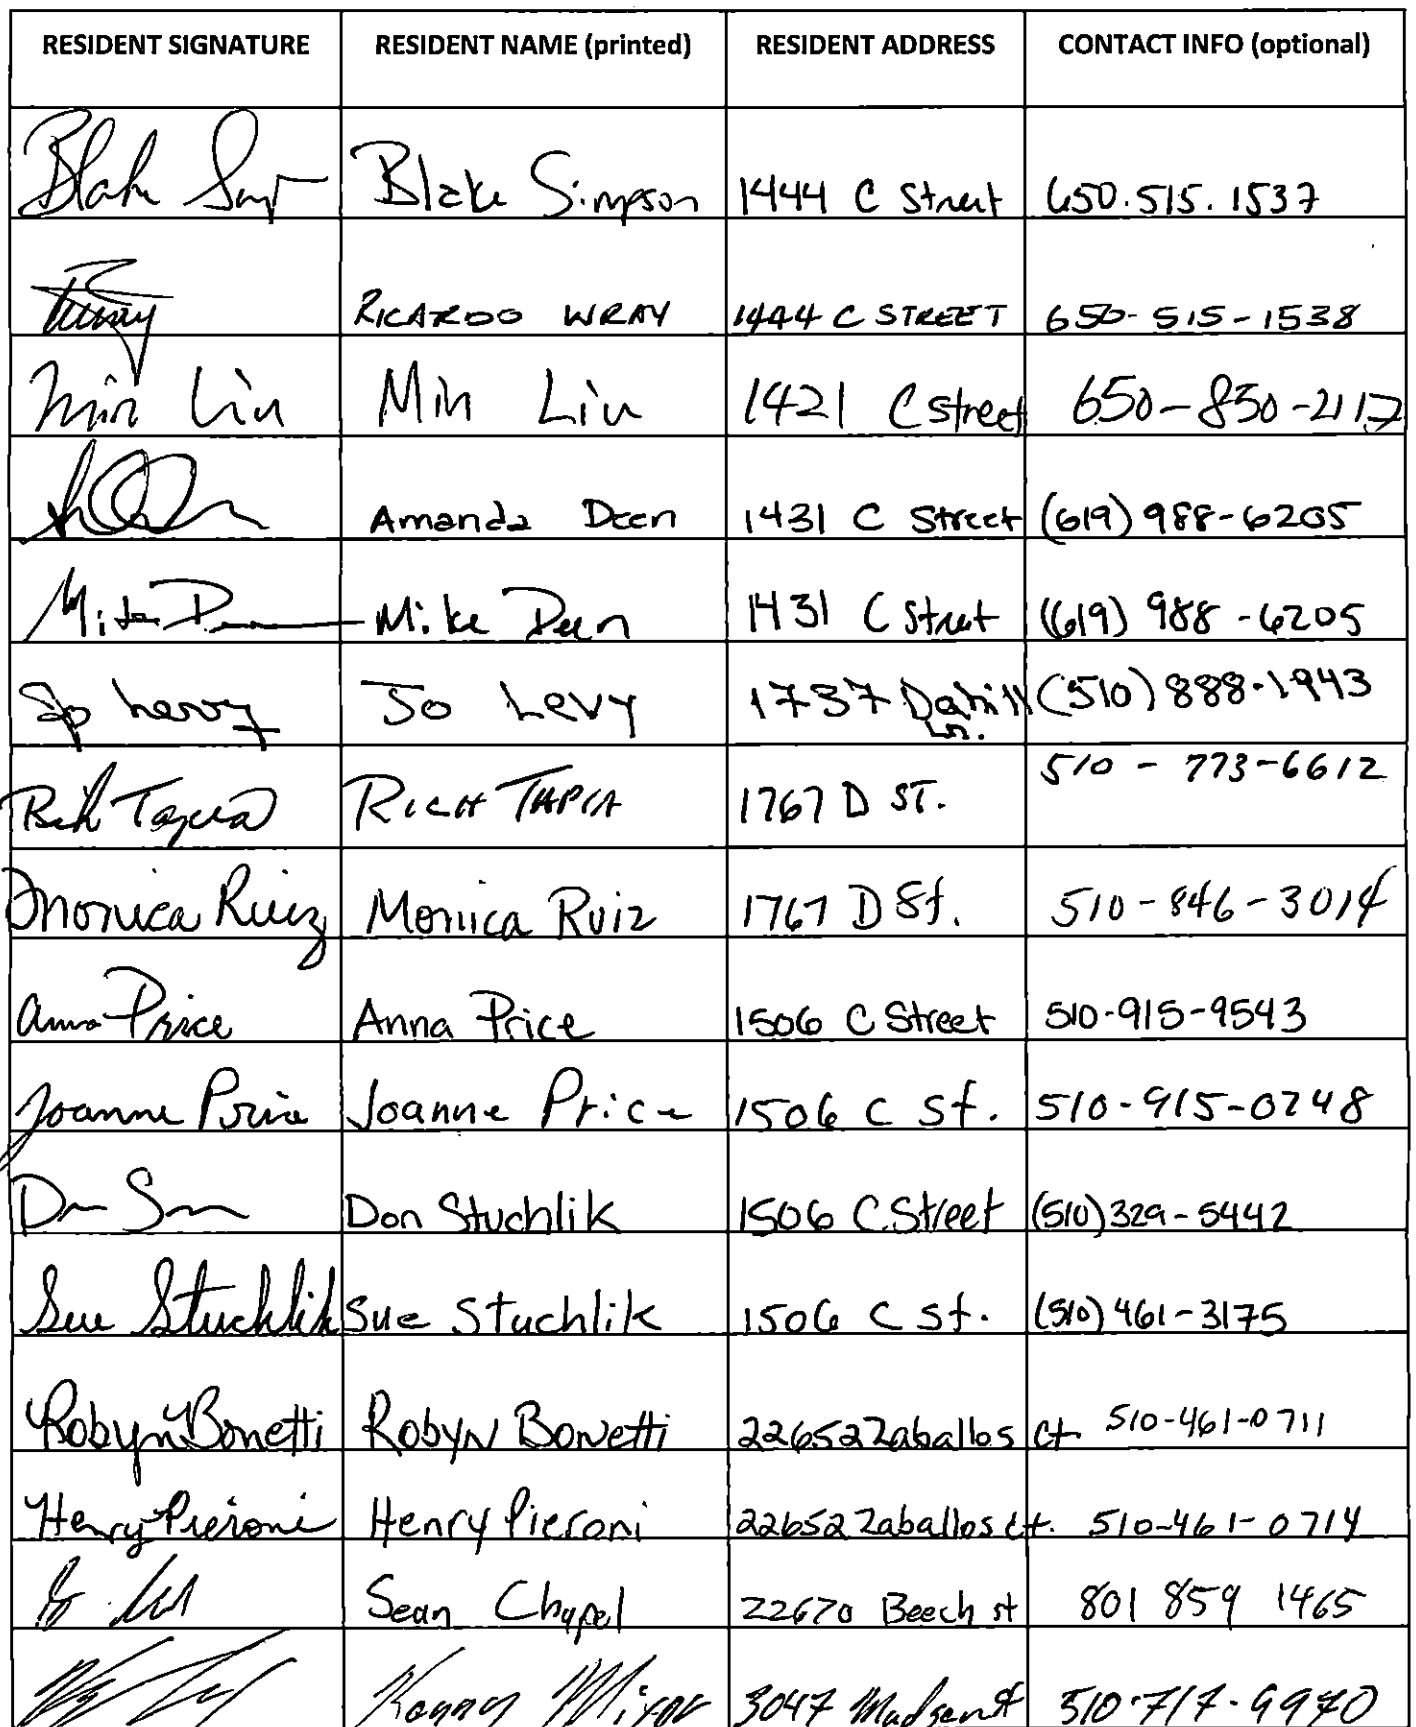 RESIDENT SIGNATURE RESIDENT NAME (printed) RESIDENT ADDRESS CONTACT INFO (optional)
Blake Blake Simpson 1444 C Street 650.515.1537
RICARDO WRAY 1444 C STREET 650-515-1538
Min Liu Min Liu 1421 C street 650-850-2117
Amanda Deen 1431 C Street (619) 988-6205
Mike Mike Deen 1431 C Street (619) 988-6205
Jo Levy Jo Levy 1737 Dahill (510) 888-1943
Ln.
510-773-6612
Rich Tapia RICH TAPIA 1767 D ST.
Monica Ruiz Monica Ruiz 1767 D St. 510-846-3014
Anna Price Anna Price 1506 C Street 510-915-9543
Joanne Price Joanne Price 1506 C St. 510-915-0248
Don Stuchlik 1506 C Street (510) 329-5442
Sue Stuchlik Sue Stuchlik 1506 C St. (510) 461-3175
Robyn Bonetti Robyn Bonetti 22652 Zaballos Ct 510-461-0711
Henry Pieroni Henry Pieroni 22652 Zaballos Ct. 510-461-0714
Sean Chapel 22670 Beech st 801 859 1465
3047 Madsen St 510-717-9940